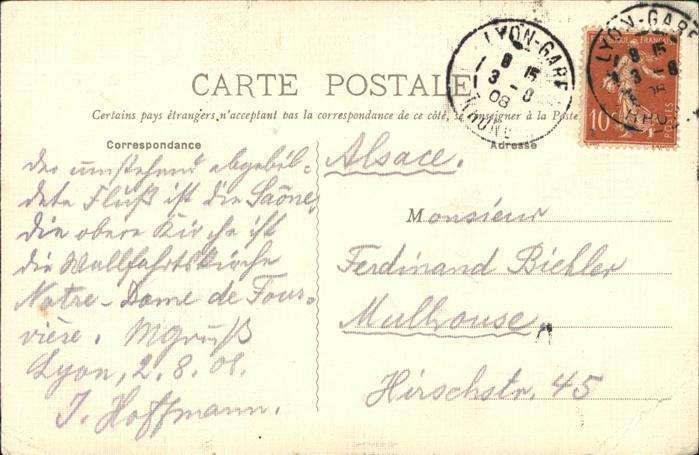 CARTE POSTALE
Certains pays étrangers n'acceptant pas la correspondance de ce côté, se renseigner à la Poste
Correspondance
der umstehend abgebil-
dete Fluß ist die Saône,
die obere Kirche ist
die Wallfahrtskirche
Notre-Dame de Four-
vière. Mgruß
Lyon, 2.8.08.
J. Hoffmann.
Alsace.
Adresse
Monsieur
Ferdinand Biehler
Mulhouse
Hirschstr. 45
LYON-GARE
8 15
3-8
08
RHONE
LYON-GARE
8 15
3-8
08
RHO
10
POSTES